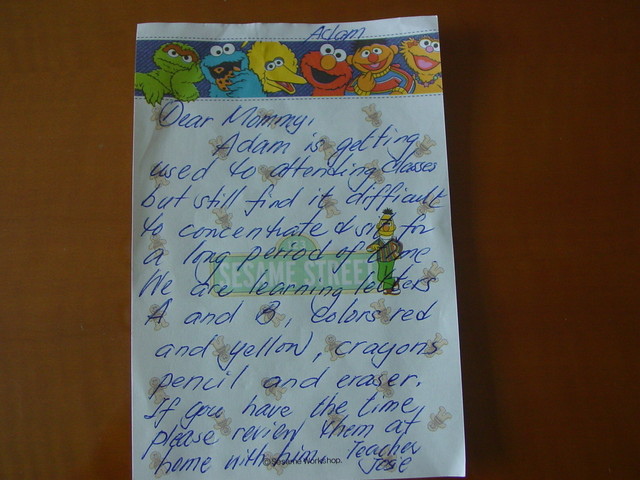 Adam
Dear Mommy,
Adam is getting
used to attending Classes
but still find it difficult
to concentrate & sit for
a long period of time
SESAME STREET
We are learning letters
A and B, Colors red
and yellow, crayons
pencil and eraser.
If you have the time
please review them at
home with him. Teacher
Josie
© Sesame Workshop.